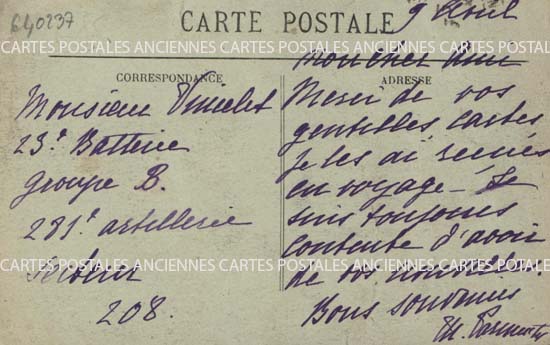 640237
CARTE POSTALE
9 Août
CARTES POSTALES ANCIENNES CARTES POSTALES ANCIENNES CARTES POSTALES
CORRESPONDANCE
Monsieur
23e Batterie
groupe B.
231e artillerie
Secteur
208.
ADRESSE
Mon cher ami
Merci de vos
gentilles cartes
Je les ai reçues
en voyage - Je
suis toujours
contente d'avoir
de vos nouvelles.
Bons souvenirs
CARTES POSTALES ANCIENNES CARTES POSTALES ANCIENNES CARTES POSTALES